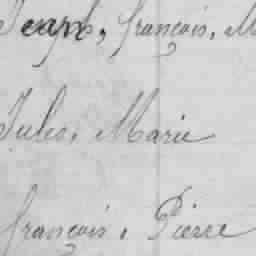 Jeaph, françois, M
Jules, Marie
françois, Pierre